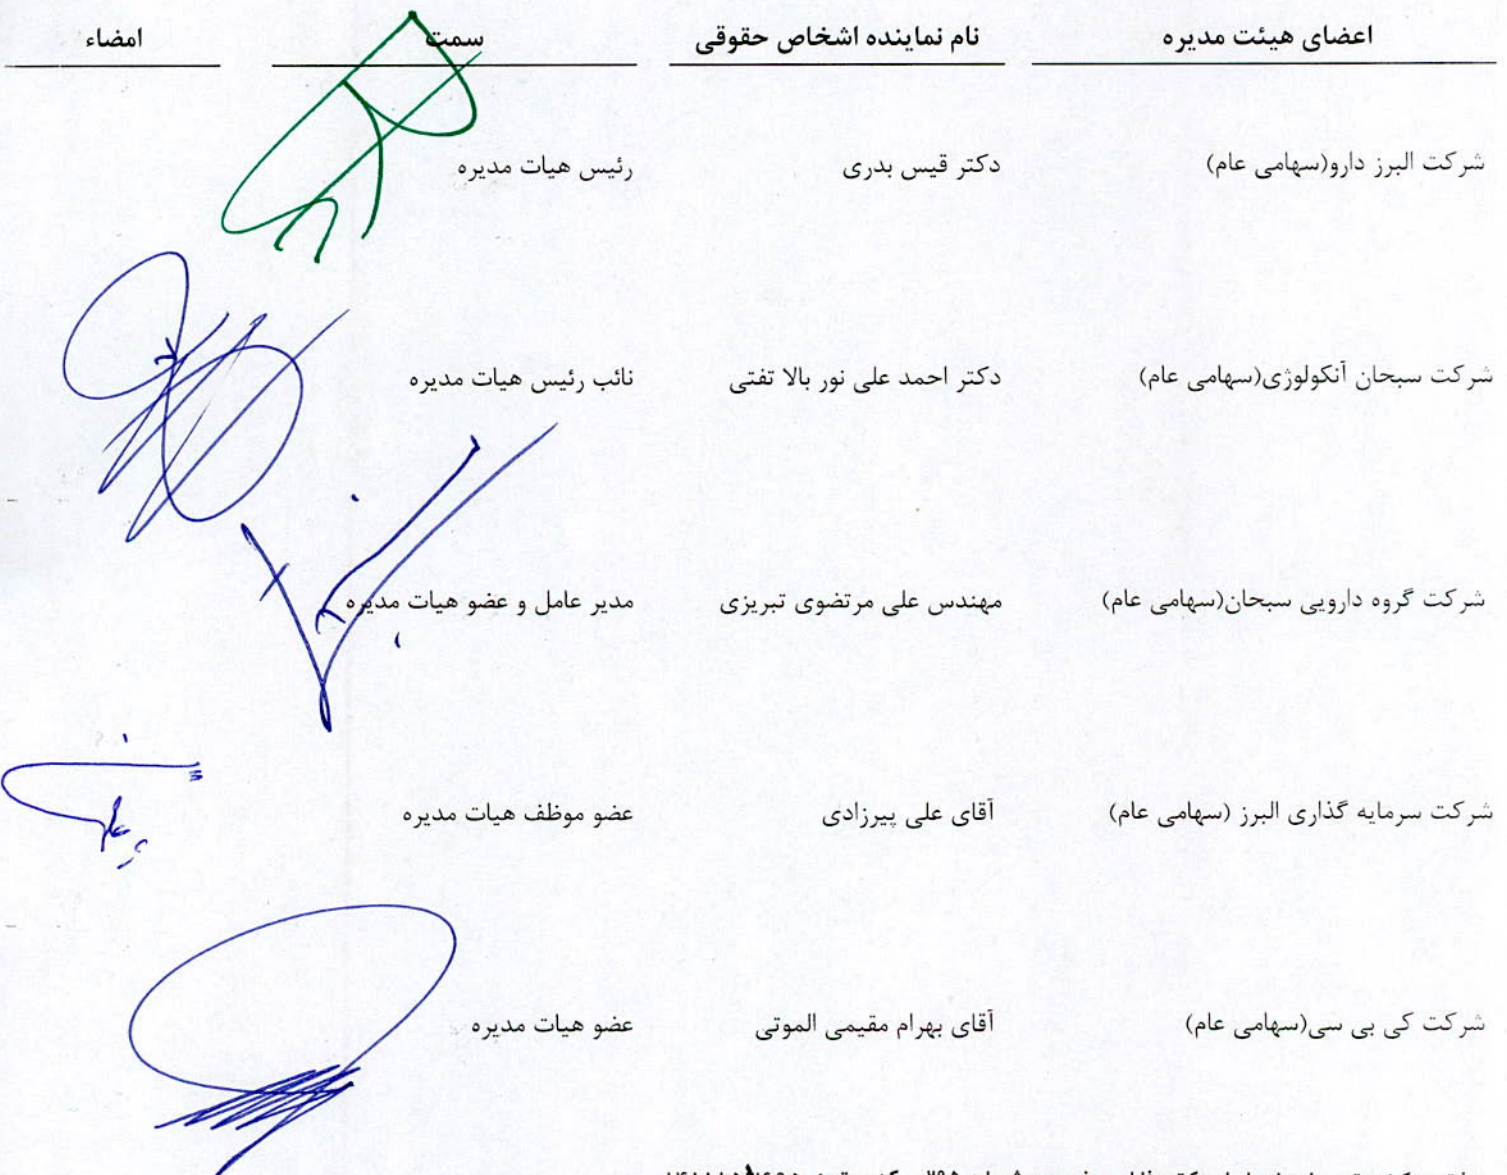 اعضای هیئت مدیره نام نماینده اشخاص حقوقی سمت امضاء
شرکت البرز دارو(سهامی عام) دکتر قیس بدری رئیس هیات مدیره
شرکت سبحان آنکولوژی(سهامی عام) دکتر احمد علی نور بالا تفتی نائب رئیس هیات مدیره
شرکت گروه دارویی سبحان(سهامی عام) مهندس علی مرتضوی تبریزی مدیر عامل و عضو هیات مدیره
شرکت سرمایه گذاری البرز (سهامی عام) آقای علی پیرزادی عضو موظف هیات مدیره
شرکت کی بی سی(سهامی عام) آقای بهرام مقیمی الموتی عضو هیات مدیره